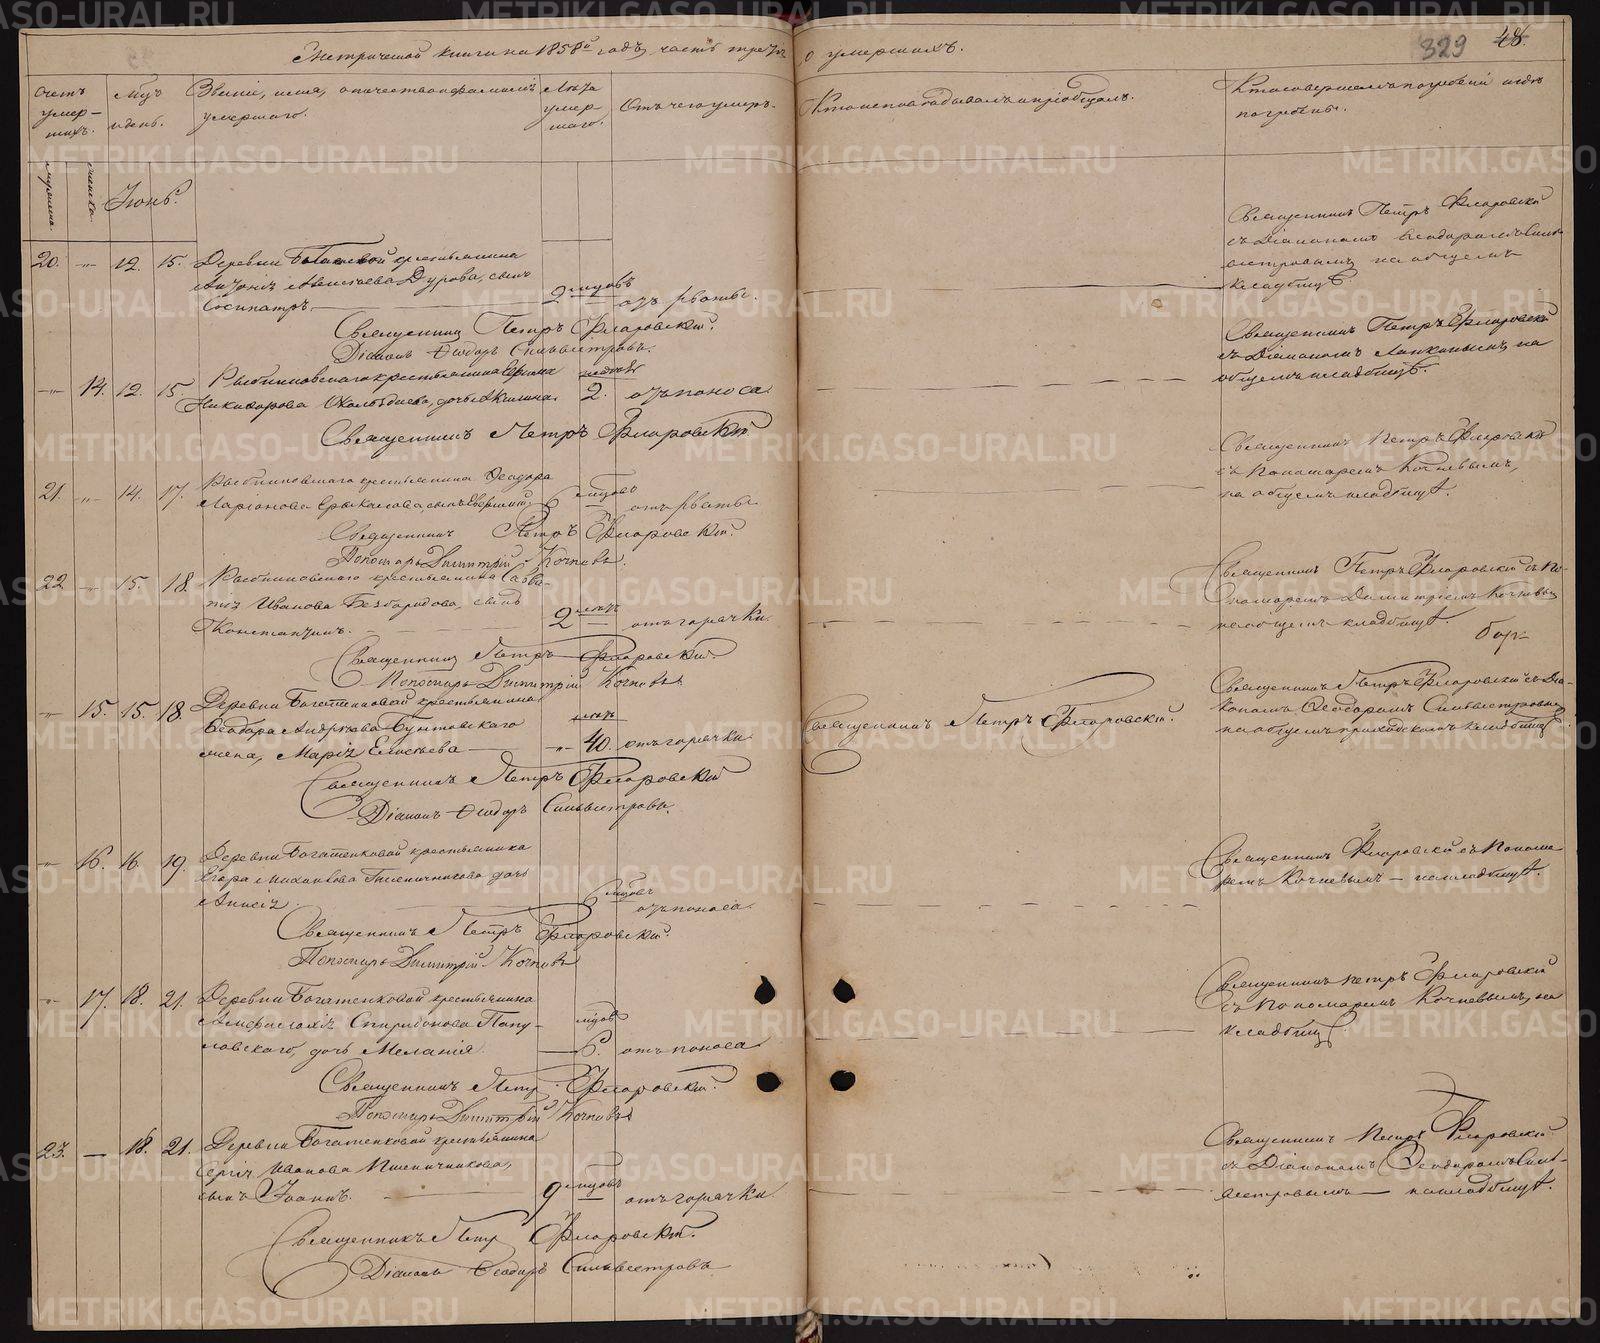 Метрической книги на 1858й годъ, часть третья о умершихъ.
329
48.
Счетъ умер-
шихъ.
Мцъ
и день.
Званіе, имя, отчество и фамилія
умершаго.
Лѣта
умер-
шаго.
Отъ чего умеръ.
Кто исповѣдывалъ и пріобщалъ.
Кто совершалъ погребеніе и гдѣ
погребены.
мужеска.
женска.
Іюнь.
20. -"- 12. 15. Деревни крестьянина
Дурова, сынъ
Сосипатръ. 2 мцовъ отъ рвоты.
Священникъ Петръ Флоровскій
съ Діакономъ Ѳеодоромъ Сильве-
стровымъ на общемъ
кладбищѣ.
Священникъ Петръ Флоровскій.
Діаконъ Ѳеодоръ Сильвестровъ.
-"- 14. 12. 15. крестьянина Ефима
Никифорова дочь Акилина. недѣль 2. отъ поноса
Священникъ Петръ Флоровскій
съ Діакономъ на
общемъ кладбищѣ.
Священникъ Петръ Флоровскій.
21. -"- 14. 17. крестьянина Ѳеодора
Ларіонова сынъ 6 мцовъ отъ рвоты
Священникъ Петръ Флоровскій
съ Пономаремъ Кочневымъ,
на общемъ кладбищѣ.
Священникъ Петръ Флоровскій.
Пономарь Димитрій Кочневъ.
22. -"- 15. 18. крестьянина Савва-
тія Иванова Безбородова, сынъ
Константинъ. 2 лѣтъ отъ горячки.
Священникъ Петръ Флоровскій съ По-
номаремъ Димитріемъ Кочневымъ
на общемъ кладбищѣ.
Священникъ Петръ Флоровскій.
Пономарь Димитрій Кочневъ.
-"- 15. 15. 18. Деревни Богатенковой крестьянина
Ѳеодора Андреева Бутовскаго
жена, Марія Елисѣева -"- лѣтъ 40. отъ горячки
Священникъ Петръ Флоровскій.
Священникъ Петръ Флоровскій съ Діа-
кономъ Ѳеодоромъ Сильвестровымъ
на общемъ приходскомъ кладбищѣ.
Священникъ Петръ Флоровскій
Діаконъ Ѳеодоръ Сильвестровъ.
-"- 16. 16. 19. Деревни Богатенковой крестьянина
Егора Михайлова Пшеничникова дочь
Анисія. 6 мцовъ отъ поноса.
Священникъ Флоровскій съ Понома-
ремъ Кочневымъ — на кладбищѣ.
Священникъ Петръ Флоровскій.
Пономарь Димитрій Кочневъ
-"- 17. 18. 21. Деревни Богатенковой крестьянина
Спиридонова Папу-
ловскаго, дочь Меланія. мцовъ 6. отъ поноса
Священникъ Петръ Флоровскій
съ Пономаремъ Кочневымъ, на
кладбищѣ
Священникъ Петръ Флоровскій.
Пономарь Димитрій Кочневъ
23. — 18. 21. Деревни Богатенковой крестьянина
Сергія Иванова Пшеничникова,
сынъ Іоаннъ. 9 мцовъ отъ горячки
Священникъ Петръ Флоровскій
съ Діакономъ Ѳеодоромъ Сильве-
стровымъ — на кладбищѣ.
Священникъ Петръ Флоровскій.
Діаконъ Ѳеодоръ Сильвестровъ
METRIKI.GASO-URAL.RU